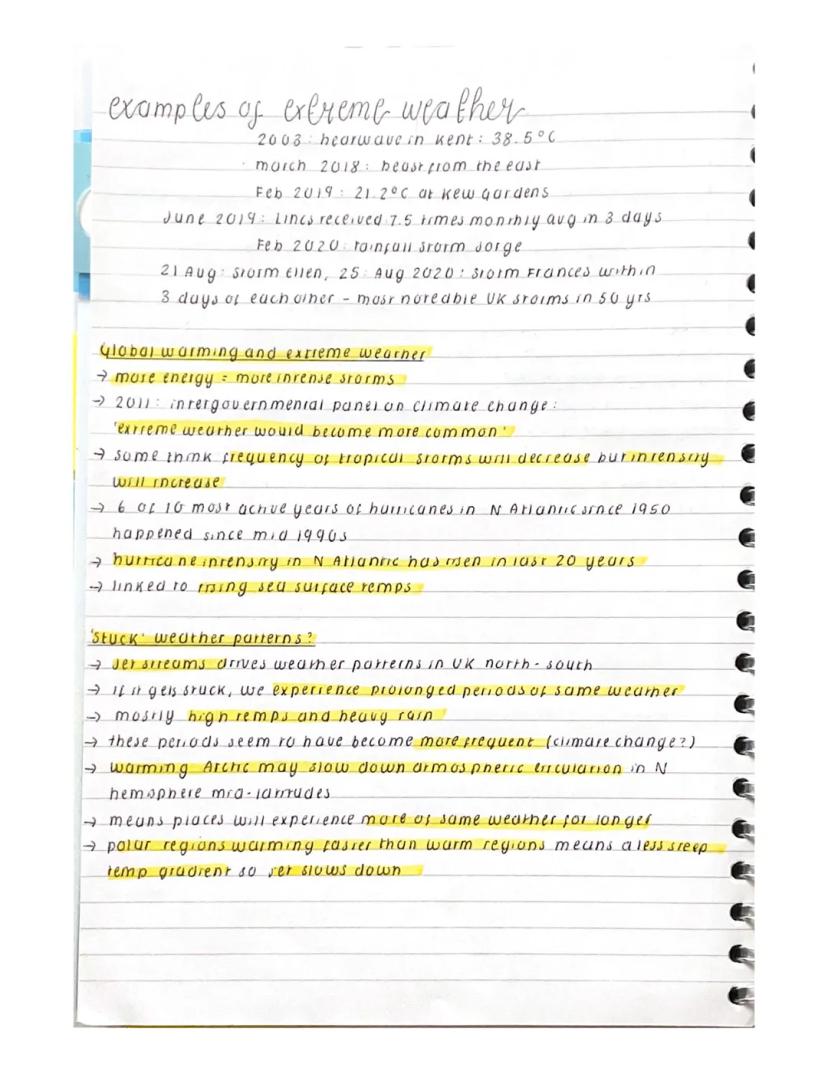 examples of extreme weather
2003: heatwave in Kent: 38.5°C
· march 2018: beast from the east
Feb 2019: 21.2°C at Kew Gardens
June 2019: Lincs received 2.5 times monthly avg in 3 days
Feb 2020: rainfall storm Jorge
21 Aug: storm Ellen, 25 Aug 2020: storm Frances within
3 days of each other - most noteable UK storms in 50 yrs
Global warming and extreme weather
→ more energy = more intense storms
→ 2011: intergovernmental panel on climate change:
'extreme weather would become more common'
→ some think frequency of tropical storms will decrease but intensity
will increase
→ 6 of 10 most active years of hurricanes in N Atlantic since 1950
happened since mid 1990s
→ hurricane intensity in N Atlantic has risen in last 20 years
→ linked to rising sea surface temps
'Stuck' weather patterns?
→ Jet streams drives weather patterns in UK north-south
→ if it gets stuck, we experience prolonged periods of same weather
→ mostly high temps and heavy rain
→ these periods seem to have become more frequent (climate change?)
→ warming Arctic may slow down atmospheric circulation in N
hemosphere mid-latitudes
→ means places will experience more of same weather for longer
→ polar regions warming faster than warm regions means a less steep
temp gradient so jet slows down